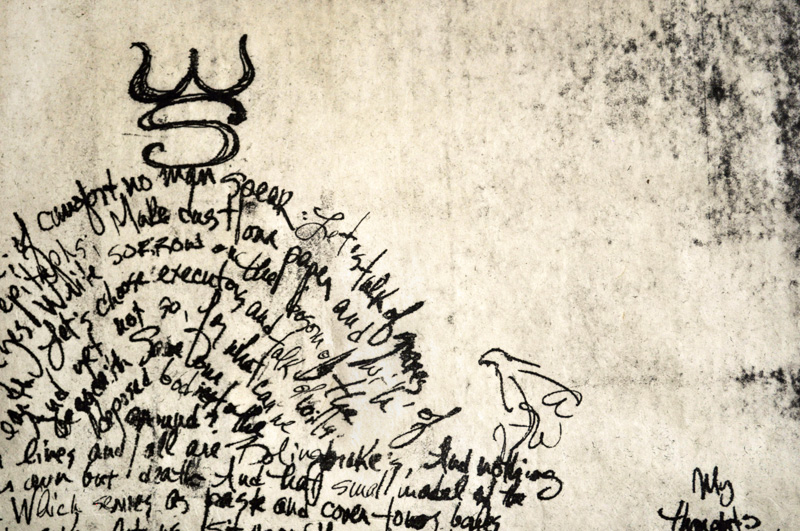 WS
of comfort no man speak: Let's talk of graves
epitaphs; Make dust our paper and with
eyes Write sorrow on the bosom of the
earth Let's choose executors and talk of wills:
And yet not so, for what can we
bequeath Save our
deposed bodies to the
ground?
lines and all are Bolingbroke's, And nothing
own but death And that small model of the
Which serves as paste and cover to our bones
My
thoughts